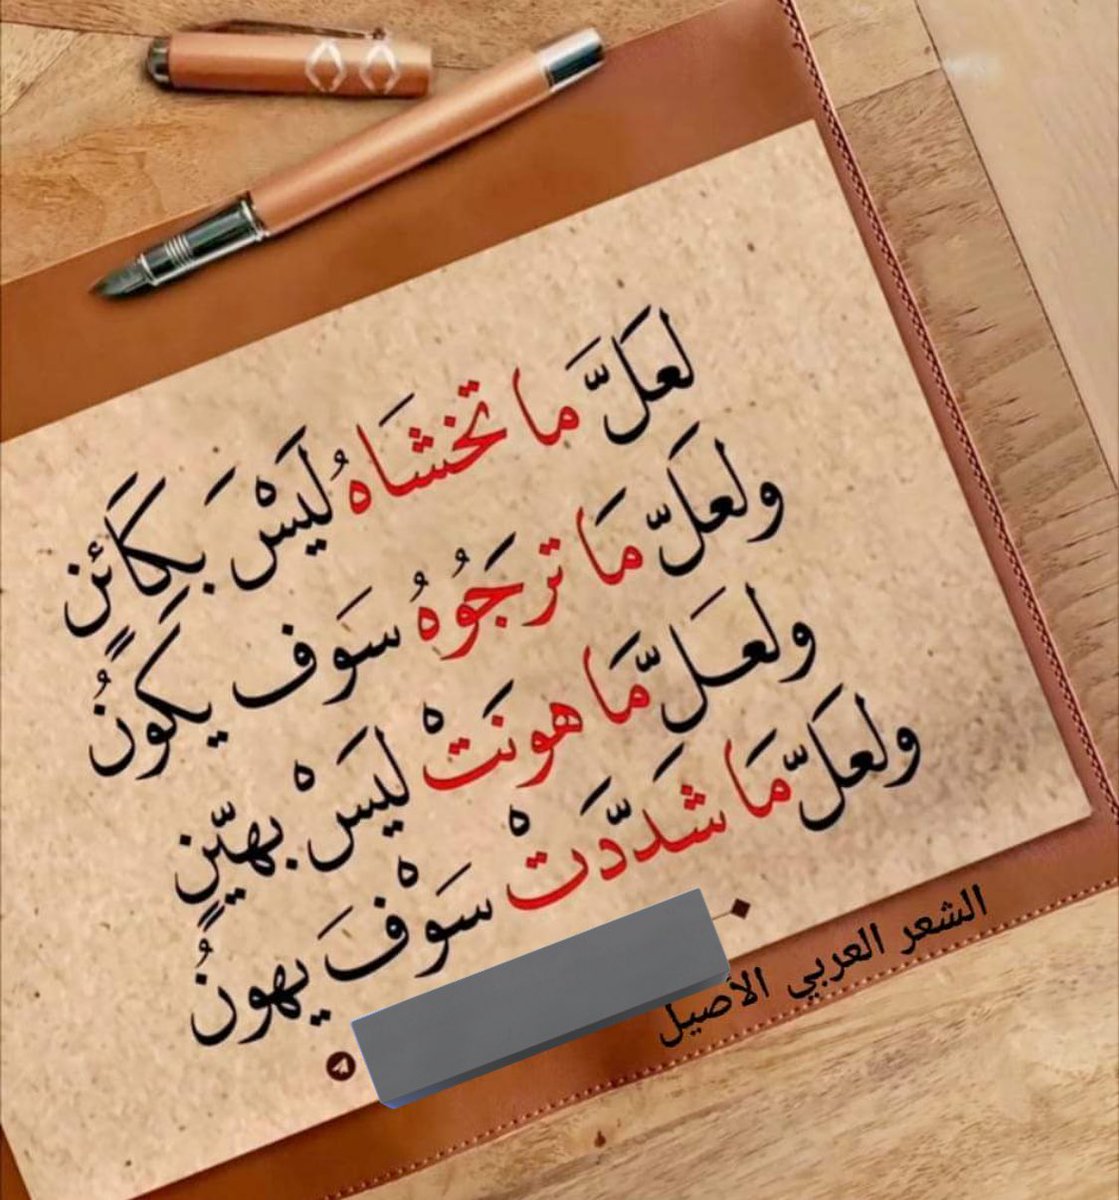 لعَلَّ ما تخشَاهُ ليَسْ بَكِكَائِنٍ
ولعَلَّ مَا ترجَوُهُ سَوف يكَونُ
ولعَلَّ مَا هونَتْ ليَسْ بهيّنٍ
ولعَلَّ مَا شدَدَّتْ سَوْفَ يهونُ
الشعر العربي الأصيل